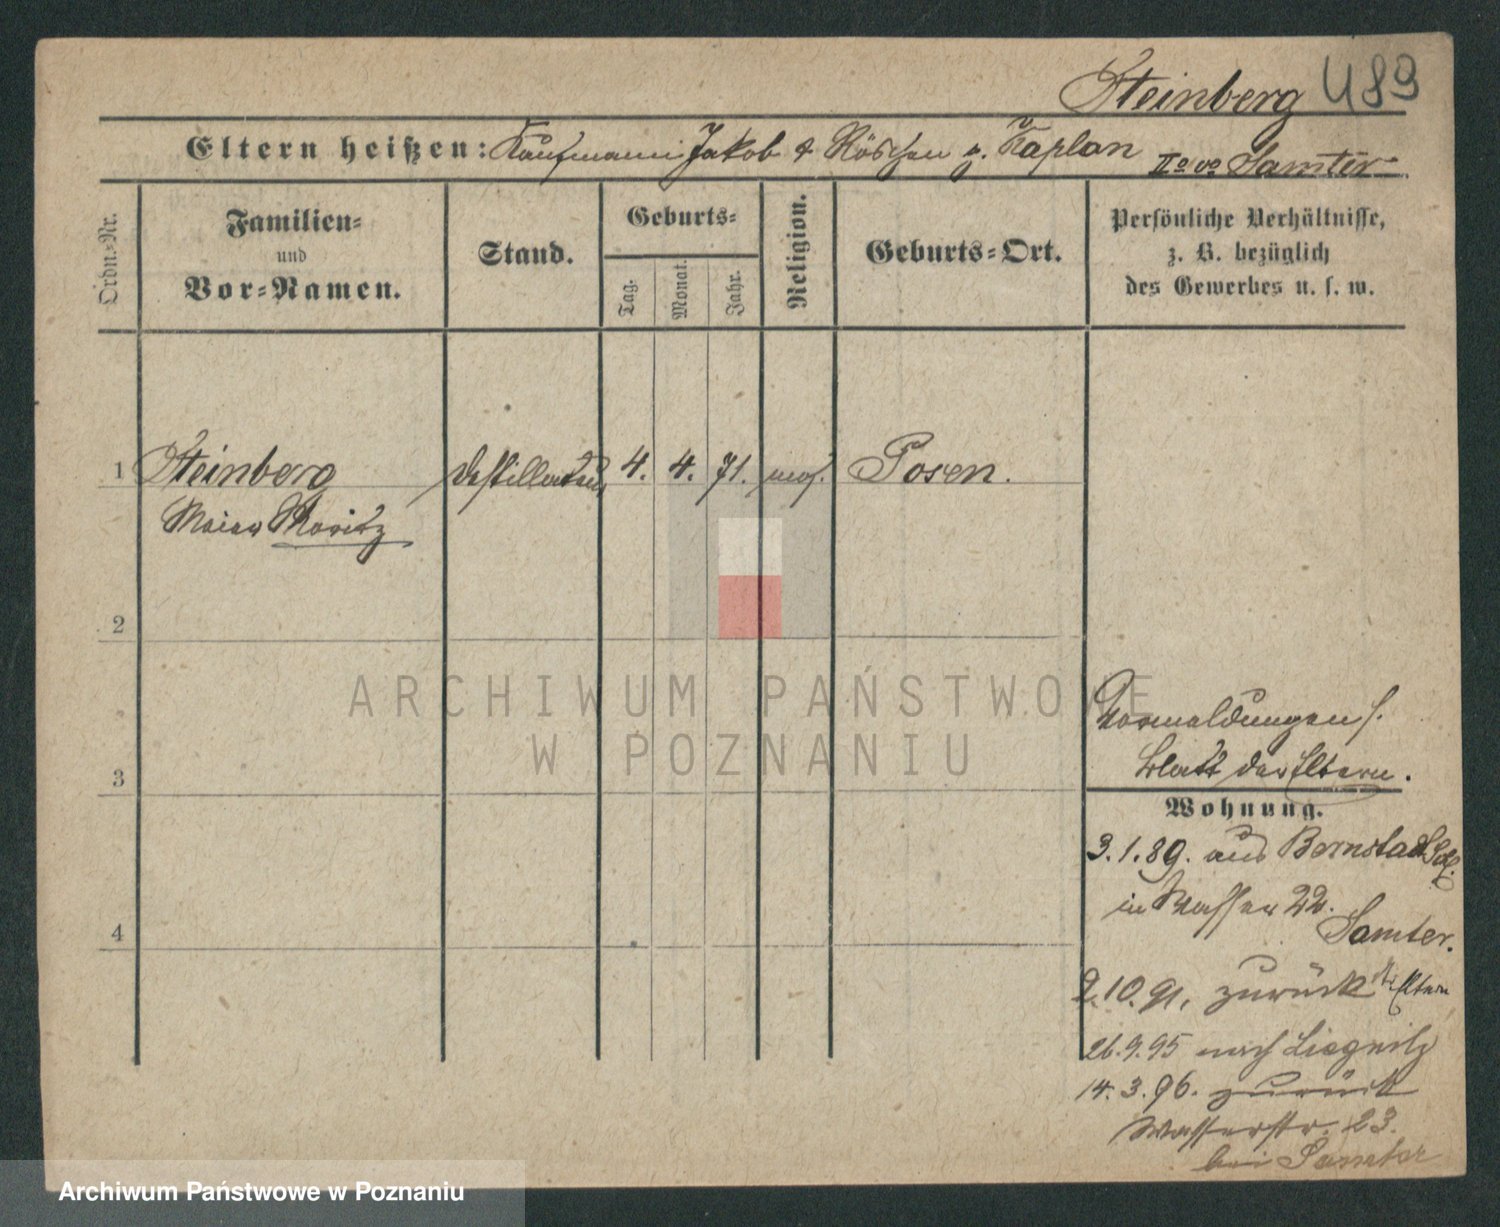 Steinberg 489
Eltern heißen: Kaufmann Jakob & Röschen g. Kaplan IIo vo Samter
Ordn.-Nr.
Familien-
und
Vor-Namen.
Stand.
Geburts-
Tag.
Monat.
Jahr.
Religion.
Geburts-Ort.
Persönliche Verhältnisse,
z. B. bezüglich
des Gewerbes u. s. w.
1 Steinberg Destillateur 4. 4. 71. mos. Posen.
Meier Moritz
2
3
4
Vormeldungen s.
Blatt der Eltern.
Wohnung.
3.1.89. aus Bernstadt Schl.
in Wasser 22.
Samter.
2.10.91. zurück Eltern
26.9.95 nach Liegnitz
14.3.96. zurück
Wasserstr. 23.
bei Samter
ARCHIWUM PAŃSTWOWE
W POZNANIU
Archiwum Państwowe w Poznaniu